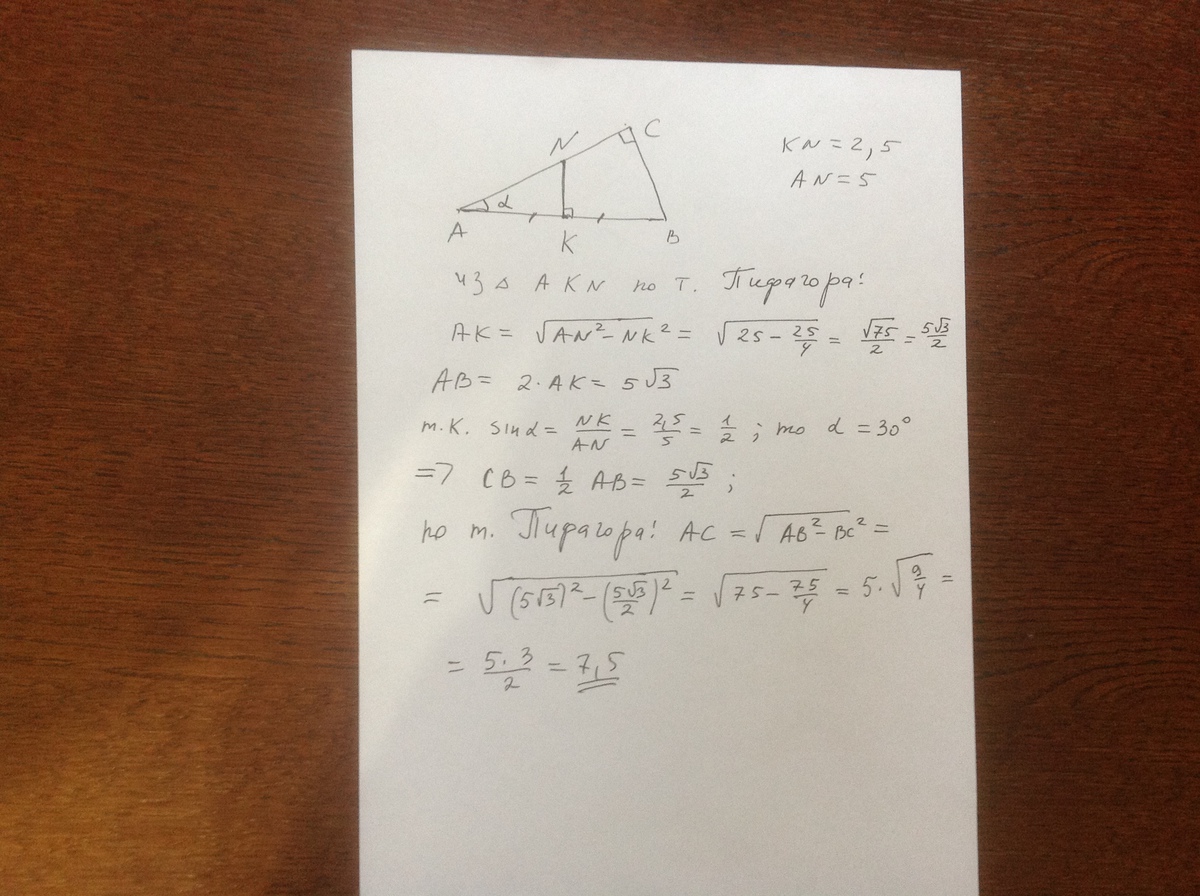 N
C
α
A
K
B
KN = 2,5
AN = 5
из △ AKN по т. Пифагора:
AK = √(AN² - NK²) = √(25 - 25/4) = √75/2 = 5√3/2
AB = 2·AK = 5√3
т.к. sinα = NK/AN = 2,5/5 = 1/2 ; то α = 30°
=> CB = 1/2 AB = 5√3/2 ;
по т. Пифагора: AC = √(AB² - BC²) =
= √((5√3)² - (5√3/2)²) = √(75 - 75/4) = 5·√(9/4) =
= 5·3/2 = 7,5